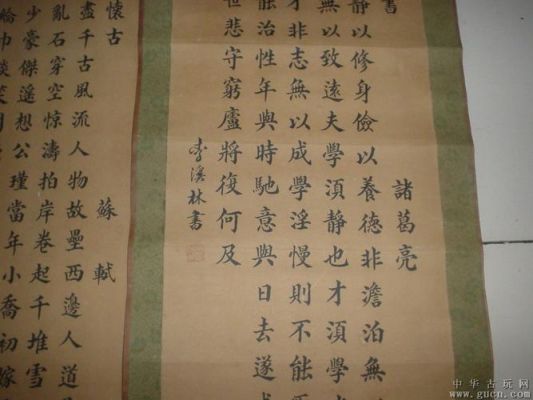 書
諸葛亮
靜以修身儉以養德非澹泊無
無以致遠夫學湏靜也才湏學
才非志無以成學淫慢則不能
能治性年與時馳意與日去遂
世悲守窮廬將復何及
李溪林書
懷古
蘇軾
盡千古風流人物故壘西邊人道
亂石穿空惊濤拍岸卷起千堆雪
少豪傑遙想公瑾當年小喬初嫁
巾談笑
中华古玩网
www.gucn.com